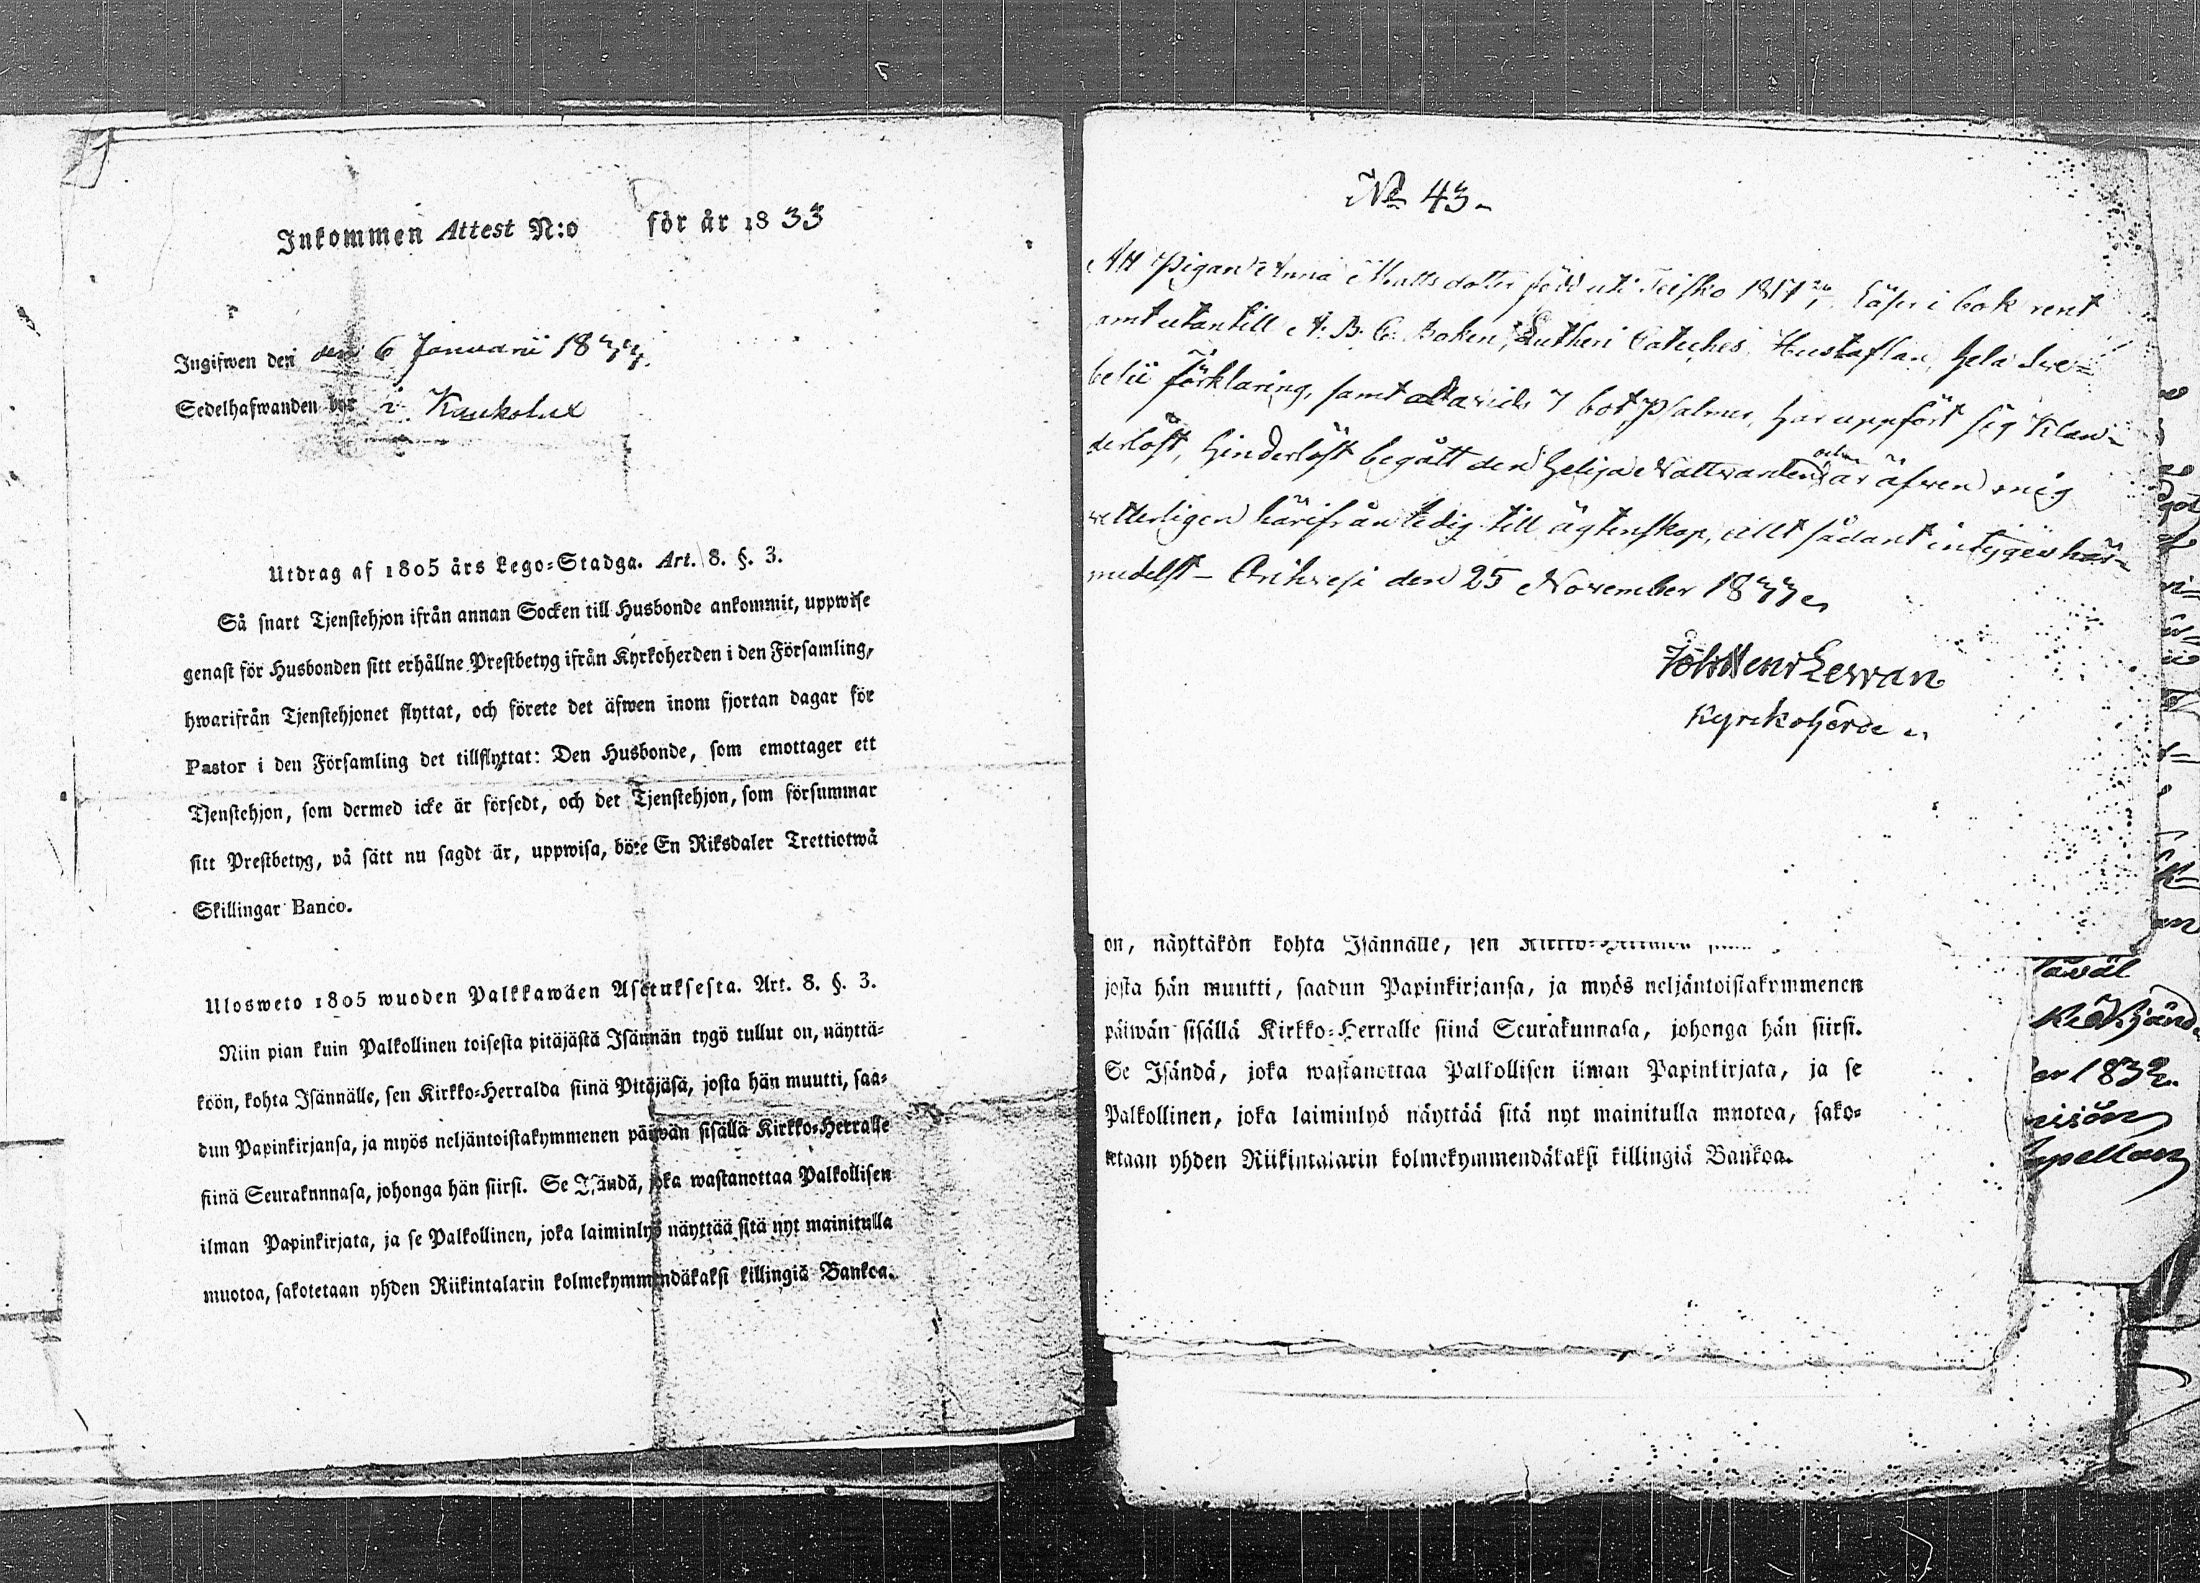 Inkommen Attest N:o för år 1833
Ingifwen den den 6 Januarii 1833.
Sedelhafwanden bor i Kaukolux
Utdrag af 1805 års Lego-Stadga. Art. 8. §. 3.
Så snart Tjenstehjon ifrån annan Socken till Husbonde ankommit, uppwise
genast för Husbonden sitt erhållne Prestbetyg ifrån Kyrkoherden i den Församling,
hwarifrån Tjenstehjonet flyttat, och förete det äfwen inom fjortan dagar för
Pastor i den Församling det tillflyttat: Den Husbonde, som emottager ett
Tjenstehjon, som dermed icke är försedt, och det Tjenstehjon, som försummar
sitt Prestbetyg, på sätt nu sagdt är, uppwisa, böte En Riksdaler Trettiotwå
Skillingar Banco.
Ulosweto 1805 wuoden Palkkawäen Asetuksesta. Art. 8. §. 3.
Niin pian kuin Palkollinen toisesta pitäjästä Isännän tygö tullut on, näyttä-
köön, kohta Isännälle, sen Kirkko-Herralda siinä Pitäjäsä, josta hän muutti, saa-
dun Papinkirjansa, ja myös neljäntoistakymmenen päiwän sisällä Kirkko-Herralle
siinä Seurakunnasa, johonga hän siirsi. Se Isändä, joka wastanottaa Palkollisen
ilman Papinkirjata, ja se Palkollinen, joka laiminlyö näyttää sitä nyt mainitulla
muotoa, sakotetaan yhden Riikintalarin kolmekymmendäkaksi killingiä Bankoa.
No 43
Att Pigan Anna Mattsdotter född uti Teisko 1817, läser i bok rent
samt utantill A. B. C. Boken, Lutheri Cateches Hustaflan, hela Sve-
belii förklaring, samt Davids 7 bot Psalmer, har uppfört sig Klan-
derlöst, hinderlöst begått den heliga Nattvarden och är äfven mig
vetterligen härifrån ledig till ägtenskap, allt sådant intygas här-
medelst – Orihvesi den 25 November 1833
Joh Henr Lewan
Kyrckoherde
on, näyttäkön kohta Isännälle, sen
josta hän muutti, saadun Papinkirjansa, ja myös neljäntoistakymmenen
päiwän sisällä Kirkko-Herralle siinä Seurakunnasa, johonga hän siirsi.
Se Isändä, joka wastanottaa Palkollisen ilman Papinkirjata, ja se
Palkollinen, joka laiminlyö näyttää sitä nyt mainitulla muotoa, sako-
tetaan yhden Riikintalarin kolmekymmendäkaksi killingiä Bankoa.
1832